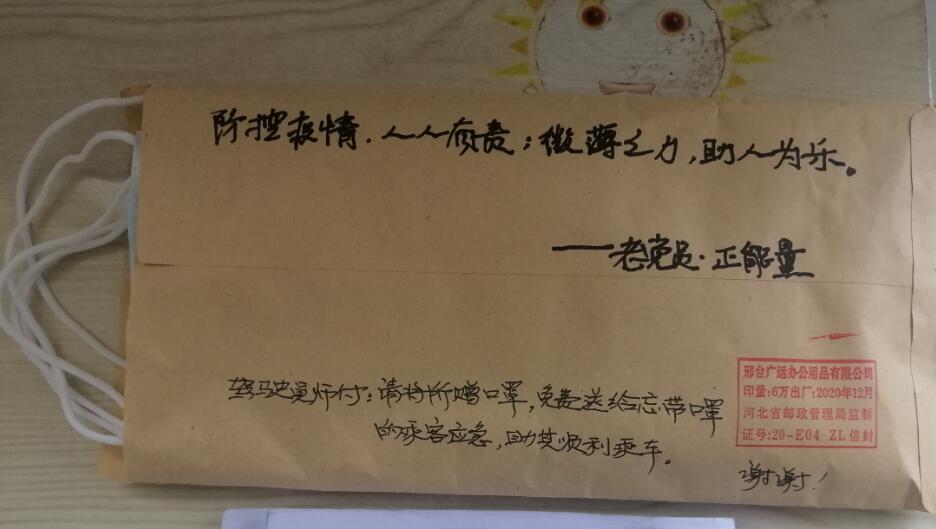 防控疫情，人人有责；微薄之力，助人为乐。
——老党员·正能量
驾驶员师付：请将所赠口罩，免费送给忘带口罩
的乘客应急，助其顺利乘车。
谢谢！
邢台广运办公用品有限公司
印量:6万出厂:2020年12月
河北省邮政管理局监制
证号:20-E04 ZL信封